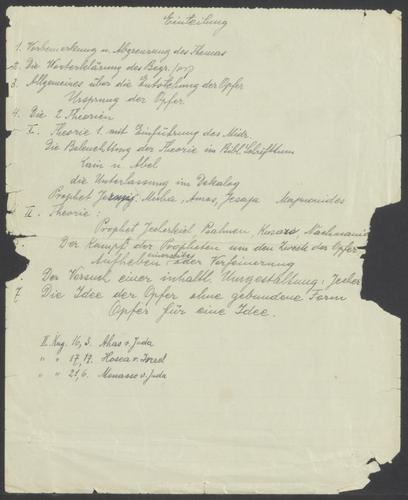 Einteilung
1. Vorbemerkung u. Abgrenzung des Themas
2. Die Worterklärung des Begr. קרבן
3. Allgemeines über die Entstehung der Opfer
Ursprung der Opfer
4. Die 2 Theorien
I. Theorie 1. mit Einführung des Midr.
Die Beleuchtung der Theorie im Bibl. Schrifttum
Cain u. Abel
die Unterlassung im Dekalog
Prophet Micha, Amos, Jesaja Majmonides
II. Theorie:
Prophet Jecheskiel Psalmen, Nachmanid
Der Kampf der Propheten um den Zweck der Opfer
Aufheben einerseits oder Verfeinerung
Der Versuch einer inhaltl. Umgestaltung: Jecher
7. Die Idee der Opfer ohne gebundene Form
Opfer für eine Idee.
II. Kng. 16, 3. Ahas v. Juda
" " 17, 17. Hosea v. Isrel
" " 21, 6. Menasse v. Juda